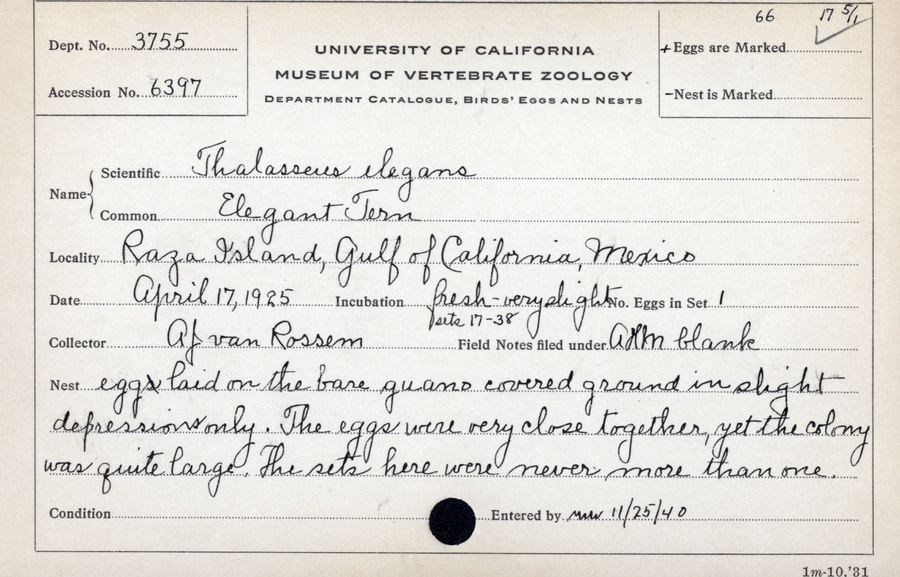 66 17 5/1
Dept. No. 3755
UNIVERSITY OF CALIFORNIA
+Eggs are Marked
MUSEUM OF VERTEBRATE ZOOLOGY
Accession No. 6397
DEPARTMENT CATALOGUE, BIRDS' EGGS AND NESTS
-Nest is Marked
Name Scientific Thalasseus elegans
Common Elegant Tern
Locality Raza Island, Gulf of California, Mexico
Date April 17, 1925 Incubation fresh-very slight No. Eggs in Set 1
sets 17-38
Collector AJ van Rossem Field Notes filed under blank
Nest eggs laid on the bare guano covered ground in slight
depressions only. The eggs were very close together, yet the colony
was quite large. The sets here were never more than one.
Condition Entered by 11/25/40
1m-10,'31